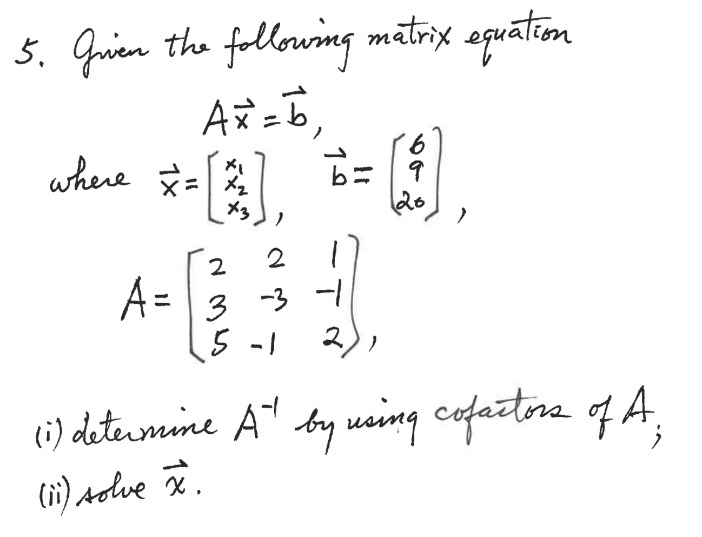 5. Given the following matrix equation
A x⃗ = b⃗,
where x⃗ = [x₁ x₂ x₃], b⃗ = [6 9 20],
A = [2 2 1
3 -3 -1
5 -1 2],
(i) determine A⁻¹ by using cofactors of A;
(ii) solve x⃗.